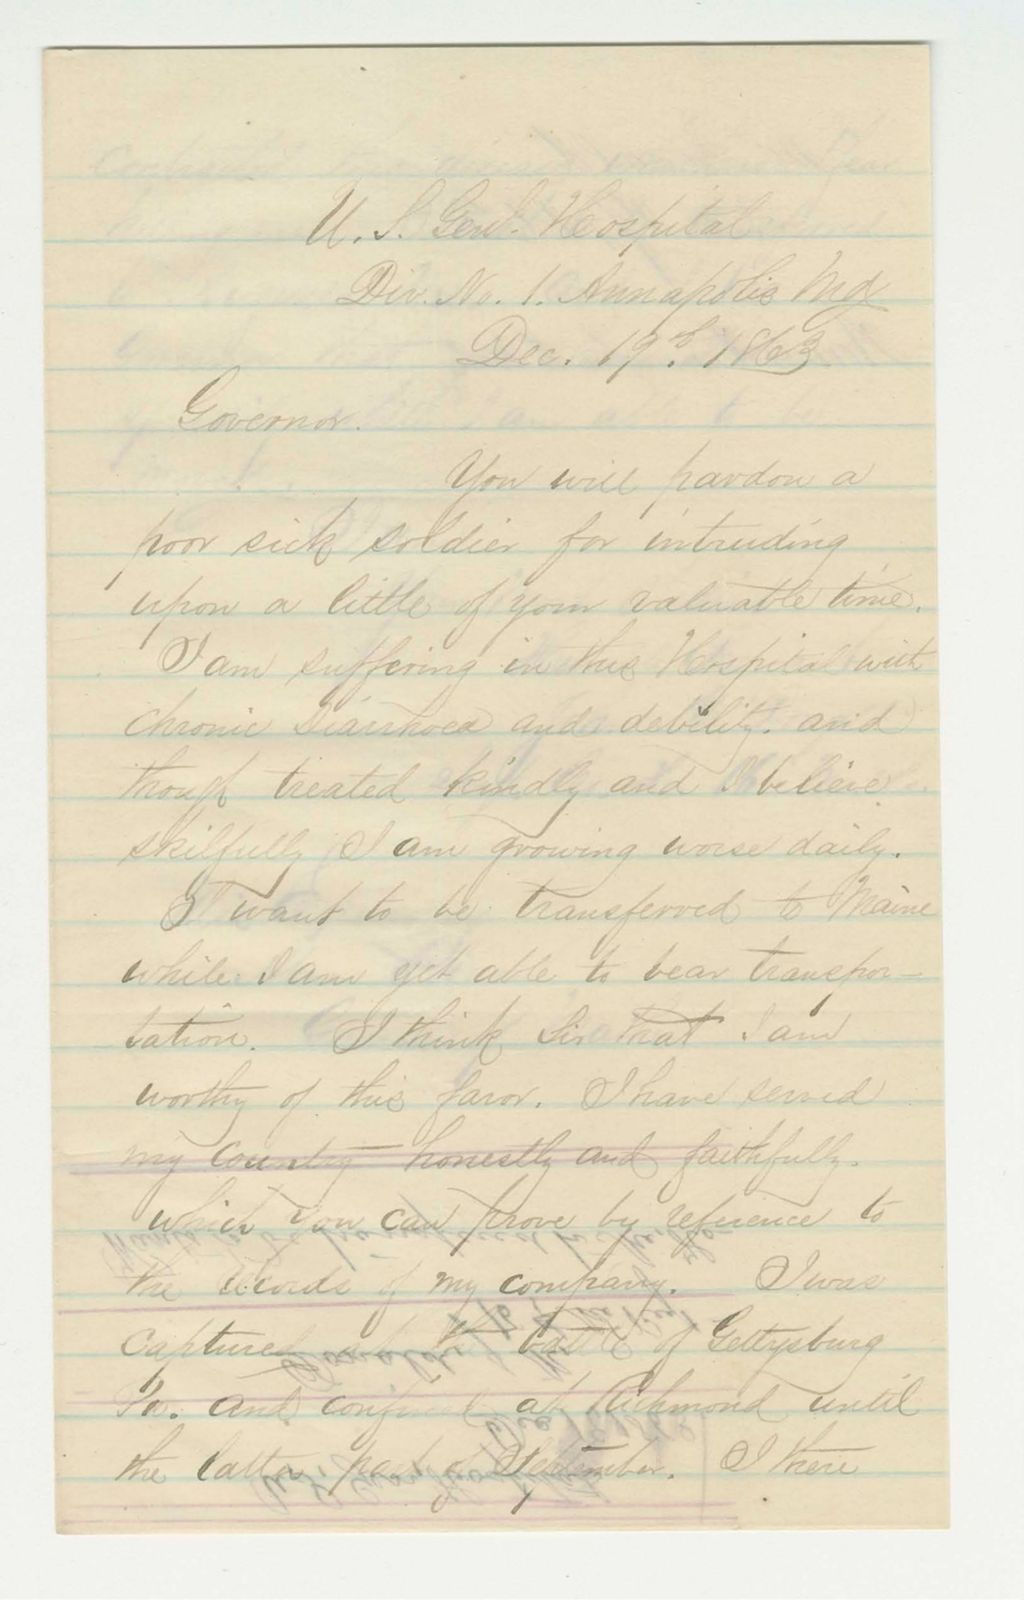 U. S. Genl. Hospital
Div. No. 1. Annapolis Md
Dec. 19th. 1863
Governor.
You will pardon a
poor sick soldier for intruding
upon a little of your valuable time.
I am suffering in this Hospital with
chronic Diarrhoea and debility. and
though treated kindly and I believe
skilfully I am growing worse daily.
I want to be transferred to Maine
while I am yet able to bear transpor-
tation. I think Sir that I am
worthy of this favor. I have served
my country honestly and faithfully.
which you can prove by reference to
the records of my company. I was
captured at the battle of Gettysburg
Pa. and confined at Richmond until
the latter part of September. I there